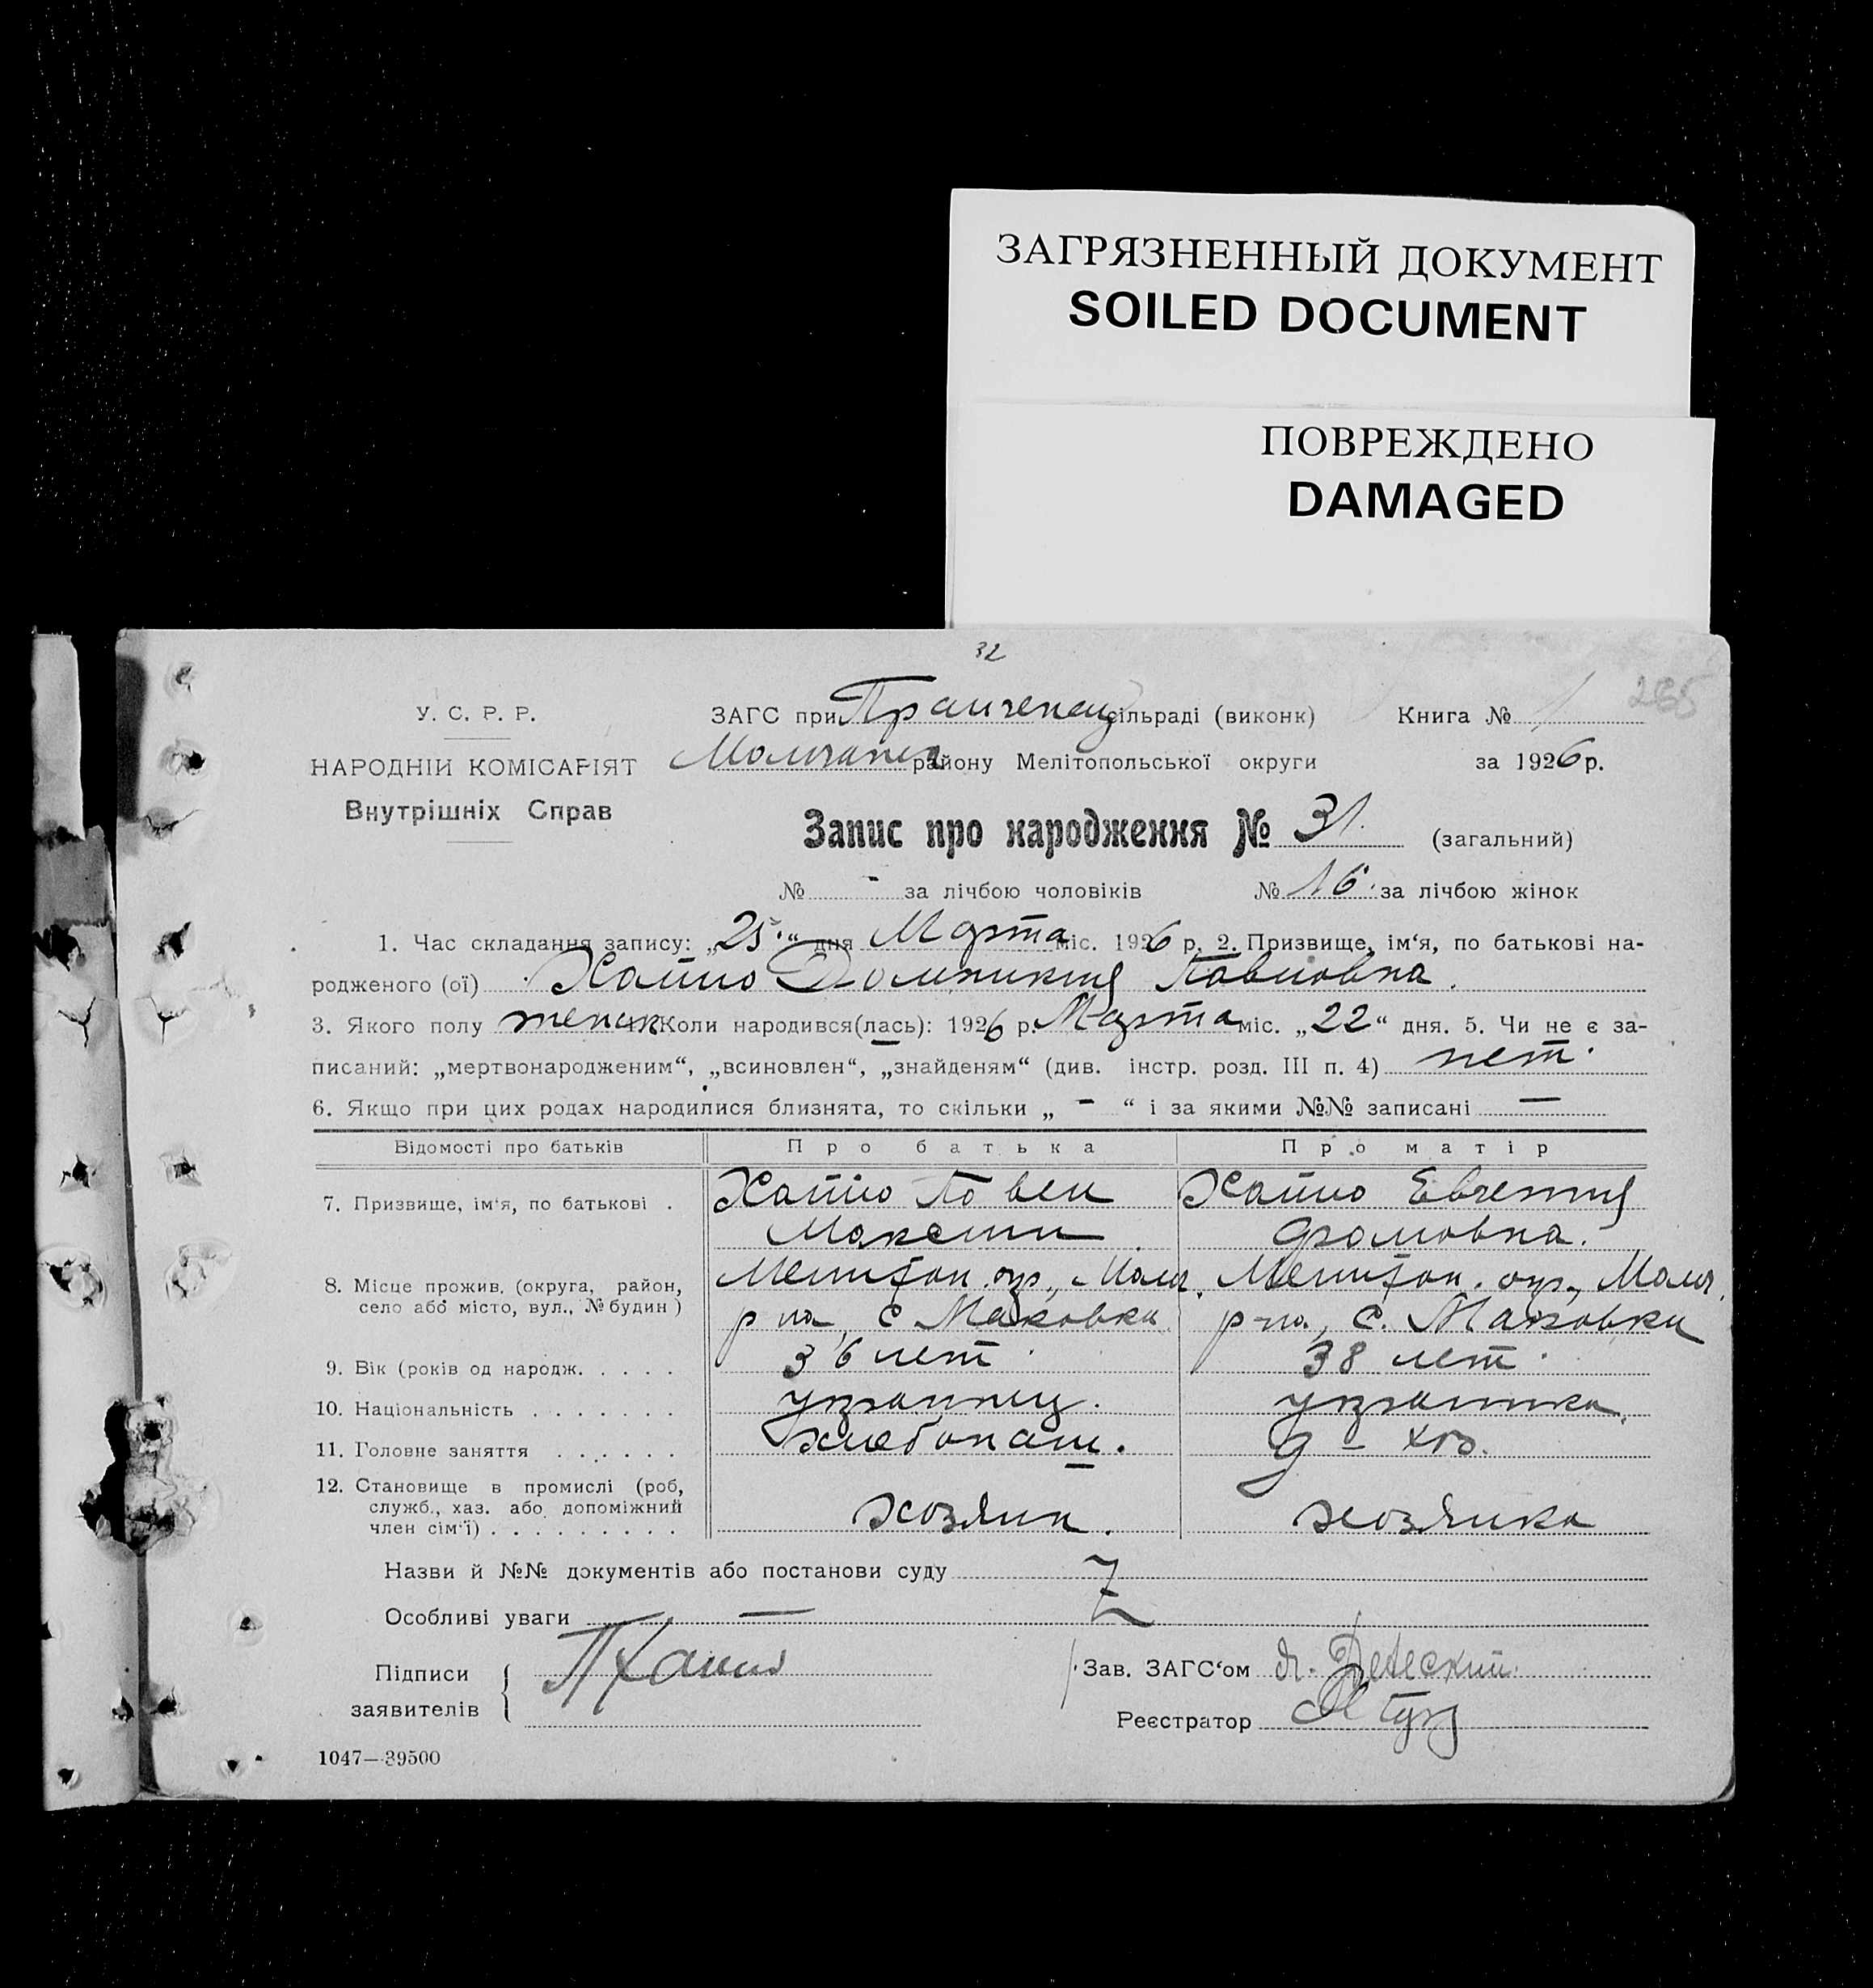 ЗАГРЯЗНЕННЫЙ ДОКУМЕНТ
SOILED DOCUMENT
ПОВРЕЖДЕНО
DAMAGED
32
У. С. Р. Р. ЗАГС при сільраді (виконк) Книга № 1
НАРОДНІЙ КОМІСАРІЯТ району Мелітопольської округи за 1926 р.
Внутрішніх Справ
Запис про народження № 31. (загальний)
№ - за лічбою чоловіків № 16 за лічбою жінок
1. Час складання запису: „25“ дня Марта міс. 1926 р. 2. Призвище, ім‘я, по батькові на-
родженого (ої) Павловна.
3. Якого полу женск Коли народився(лась): 1926 р. Марта міс. „22“ дня. 5. Чи не є за-
писаний: „мертвонародженим“, „всиновлен“, „знайденям“ (див. інстр. розд. III п. 4) нет.
6. Якщо при цих родах народилися близнята, то скільки „ - “ і за якими №№ записані —
Відомості про батьків Про батька Про матір
7. Призвище, ім‘я, по батькові . Павел
Максим
8. Місце прожив. (округа, район, Мелитоп. окр., Моло. Мелитоп. окр., Моло.
село або місто, вул., № будин) р-на, с Маковка р-на, с. Маковка
9. Вік (років од народж. . . . . 36 лет 38 лет.
10. Національність . . . . . . . украинец. украинка.
11. Головне заняття . . . . . . хлебопаш. д - хоз.
12. Становище в промислі (роб,
служб., хаз. або допоміжний хозяин. хозяйка
член сім‘ї) . . . . . . . . .
Назви й №№ документів або постанови суду
Особливі уваги —
Підписи Зав. ЗАГС‘ом
заявителів
Реєстратор
1047—39500